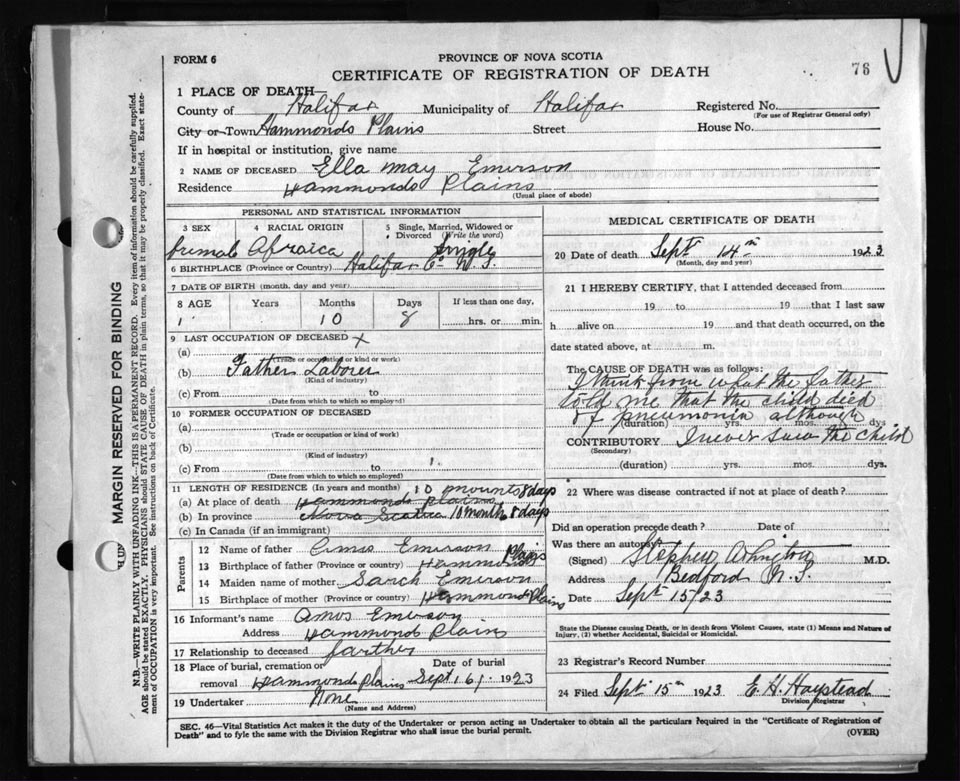 FORM 6
PROVINCE OF NOVA SCOTIA
CERTIFICATE OF REGISTRATION OF DEATH
76
1 PLACE OF DEATH—
County of Halifax Municipality of Halifax Registered No.
(For use of Registrar General only)
City or Town Hammonds Plains Street House No.
If in hospital or institution, give name
2 NAME OF DECEASED Ella May Emerson
Residence Hammonds Plains
(Usual place of abode)
PERSONAL AND STATISTICAL INFORMATION
3 SEX 4 RACIAL ORIGIN 5 Single, Married, Widowed or Divorced (Write the word)
Africa Single
6 BIRTHPLACE (Province or Country) Halifax Co N.S.
7 DATE OF BIRTH (month, day and year)
8 AGE Years Months Days If less than one day,
1 10 8 hrs. or min.
9 LAST OCCUPATION OF DECEASED X
(a)
(Trade or occupation or kind or work)
(b) Father Laborer
(Kind of industry)
(c) From to
(Date from which to which so employed)
10 FORMER OCCUPATION OF DECEASED
(a)
(Trade or occupation or kind of work)
(b)
(Kind of industry)
(c) From to 1.
(Date from which to which so employed)
11 LENGTH OF RESIDENCE (In years and months) 10 mounts 8 days
(a) At place of death Hammonds Plains
(b) In province Nova Scotia 10 month 8 days
(c) In Canada (if an immigrant)
Parents
12 Name of father Emerson
13 Birthplace of father (Province or country) Hammonds Plains
14 Maiden name of mother Sarah Emerson
15 Birthplace of mother (Province or country) Hammonds Plains
16 Informant's name Amos Emerson
Address Hammond Plains
17 Relationship to deceased farther
18 Place of burial, cremation or removal Hammonds Plains Date of burial Sept 16, 1923
19 Undertaker None
(Name and Address)
MEDICAL CERTIFICATE OF DEATH
20 Date of death Sept 14th 1923
(Month, day and year)
21 I HEREBY CERTIFY, that I attended deceased from
19 to 19 that I last saw
h alive on 19 and that death occurred, on the
date stated above, at m.
The CAUSE OF DEATH was as follows:
I think from what the father
told me that the child died
of pneumonia although
(duration) yrs. mos. dys
CONTRIBUTORY I never saw the child
(Secondary)
(duration) yrs. mos. dys.
22 Where was disease contracted if not at place of death?
Did an operation precede death? Date of
Was there an autopsy?
(Signed) Stephen M.D.
Address Bedford N.S.
Date Sept 15/23
State the Disease causing Death, or in death from Violent Causes, state (1) Means and Nature of
Injury, (2) whether Accidental, Suicidal or Homicidal.
23 Registrar's Record Number
24 Filed Sept 15th 1923 E. H. Haystead
Division Registrar
SEC. 46—Vital Statistics Act makes it the duty of the Undertaker or person acting as Undertaker to obtain all the particulars required in the "Certificate of Registration of
Death" and to fyle the same with the Division Registrar who shall issue the burial permit.
(OVER)
MARGIN RESERVED FOR BINDING
N.B.—WRITE PLAINLY WITH UNFADING INK—THIS IS A PERMANENT RECORD. Every item of information should be carefully supplied.
AGE should be stated EXACTLY. PHYSICIANS should STATE CAUSE OF DEATH in plain terms, so that it may be properly classified. Exact statement of OCCUPATION is very important. See instructions on back of Certificate.